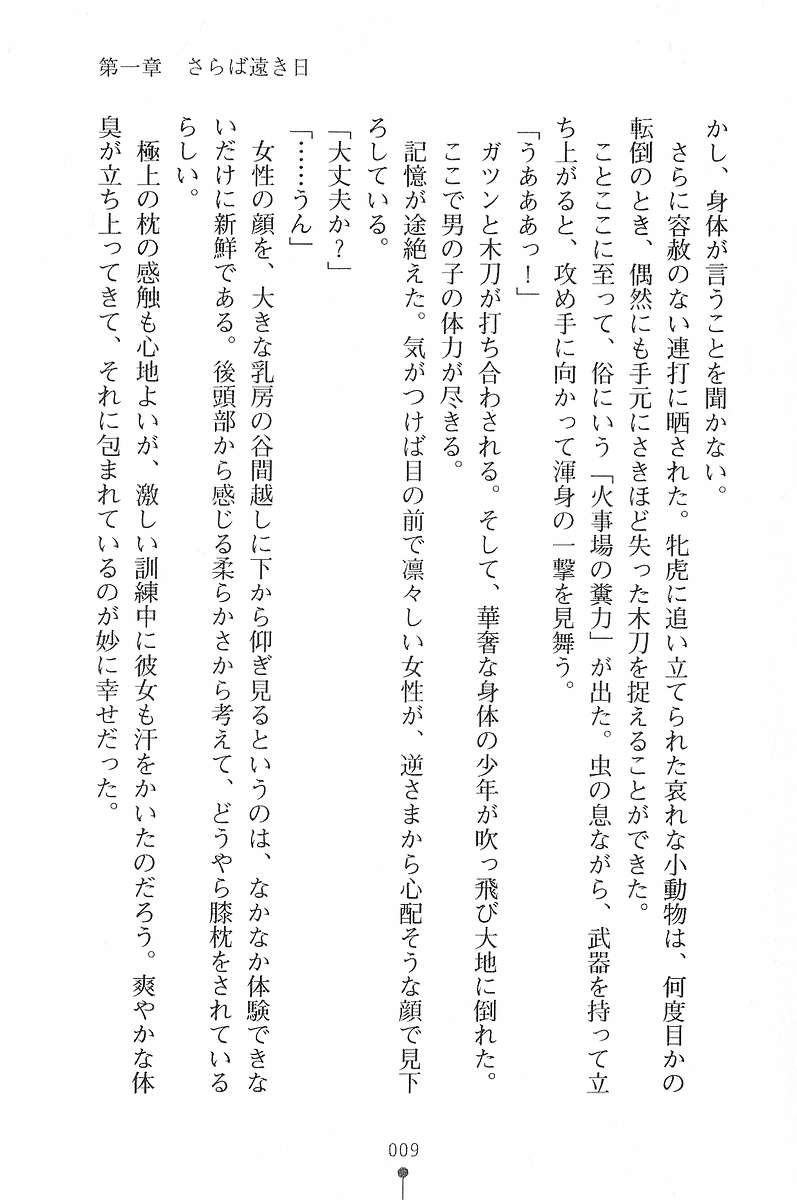 第一章　さらば遠き日
かし、身体が言うことを聞かない。
　さらに容赦のない連打に晒された。牝虎に追い立てられた哀れな小動物は、何度目かの
転倒のとき、偶然にも手元にさきほど失った木刀を捉えることができた。
　ことここに至って、俗にいう「火事場の糞力」が出た。虫の息ながら、武器を持って立
ち上がると、攻め手に向かって渾身の一撃を見舞う。
「うあああっ！」
　ガツンと木刀が打ち合わされる。そして、華奢な身体の少年が吹っ飛び大地に倒れた。
　ここで男の子の体力が尽きる。
　記憶が途絶えた。気がつけば目の前で凛々しい女性が、逆さまから心配そうな顔で見下
ろしている。
「大丈夫か？」
「……うん」
　女性の顔を、大きな乳房の谷間越しに下から仰ぎ見るというのは、なかなか体験できな
いだけに新鮮である。後頭部から感じる柔らかさから考えて、どうやら膝枕をされている
らしい。
　極上の枕の感触も心地よいが、激しい訓練中に彼女も汗をかいたのだろう。爽やかな体
臭が立ち上ってきて、それに包まれているのが妙に幸せだった。
009